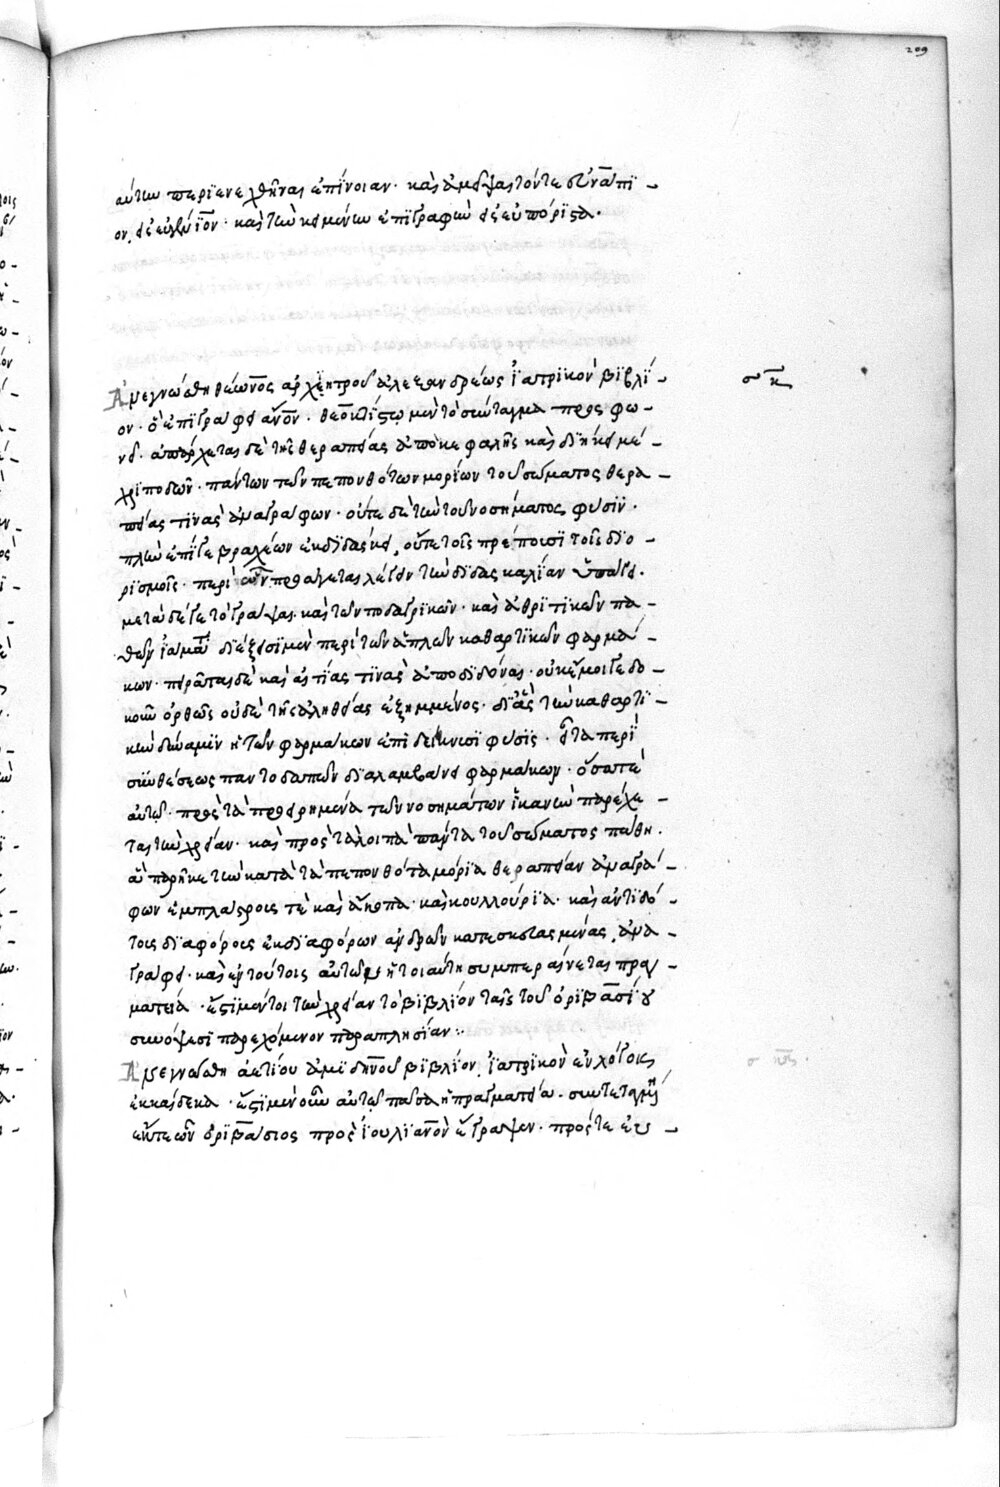 209
αὐτῶν περιενεχθῆναι ἐπίνοιαν· καὶ ἀμεῖψαι τόν τε σύναπι
ον, εἰς εὐώνυμον· καὶ τῶν κειμένων ἐπιγραφὼν εἰς εὐπόριστα·
Ἀνεγνώσθη θέωνος ἀρχιητροῦ ἀλεξανδρέως ἰατρικὸν βιβλί
ον· ὃ ἐπίγραφει ἄνον· θεοκτίστῳ μὲν τὸ σύνταγμα προσφω
νεῖ· ἀπάρχεται δὲ τῆς θεραπείας ἀπὸ κεφαλῆς καὶ διήκει μέ
χρι ποδῶν· πάντων τῶν πεπονθότων μορίων τοῦ σώματος θερα
πείας τινὰς ἀναγράφων· οὔτε δὲ τὴν τοῦ νοσήματος φύσιν·
πλὴν ἐπί γε βραχέων ἐκδιδάσκει, οὔτε τοῖς πρέπουσι τοῖς διο
ρισμοῖς· περὶ ὧν προάγεται λέγειν τὴν διδασκαλίαν ὑπάγει·
μετὰ δέ γε τὸ γράψαι καὶ τῶν ποδαγρικῶν· καὶ ἀθριτικῶν πα
θῶν ἰάματα διέξεισι μὲν περὶ τῶν ἁπλῶν καθαρτικῶν φαρμά
κων· πειρᾶται δὲ καὶ αἰτίας τινὰς ἀποδιδόναι· οὐκ ἐμοί γε δο
κοῦν ὀρθῶς οὐδὲ τῆς ἀληθείας ἐξημμένος· δι' ἃς τὴν καθαρτι
κὴν δύναμιν ἡ τῶν φαρμάκων ἐπιδείκνυσι φύσις· εἶτα περὶ
συνθέσεως παντοδαπῶν διαλαμβάνει φαρμάκων· ὅσα τε
αὐτῷ· πρὸς τὰ προειρημένα τῶν νοσημάτων ἱκανὴν παρέχε
ται τὴν χρείαν· καὶ πρὸς τὰ λοιπὰ πάντα τοῦ σώματος πάθη·
ἃ παρῆκε τὴν κατὰ τὰ πεπονθότα μόρια θεραπείαν ἀναγρά
φων ἐμπλάστροις τὲ καὶ ἄκοπα· καὶ κουλλούρια· καὶ ἀντιδό
τοις διαφόροις ἐκ διαφόρων ἀνδρῶν κατεσκευασμένας, ἀνα
γράφει· καὶ ἐν τούτοις αὐτῷ ἡ τοιαύτη συμπεραίνεται πραγ
ματεία· ἔστι μέντοι τὴν χρείαν τὸ βιβλίον ταῖς τοῦ ὀριβασίου
συνόψεσι παρεχόμενον παραπλησίαν:
Ἀνεγνώσθη ἀετίου ἀμιδηνοῦ βιβλίον, ἰατρικὸν ἐν λόγοις
ἑκκαίδεκα· ἔστι μὲν οὖν αὐτῷ πᾶσα ἡ πραγματεία· συντεταγμένη
ἔκ τε ὧν ὀριβάσιος πρὸς ἰουλιανὸν ἔγραψεν· πρός τε εὐς